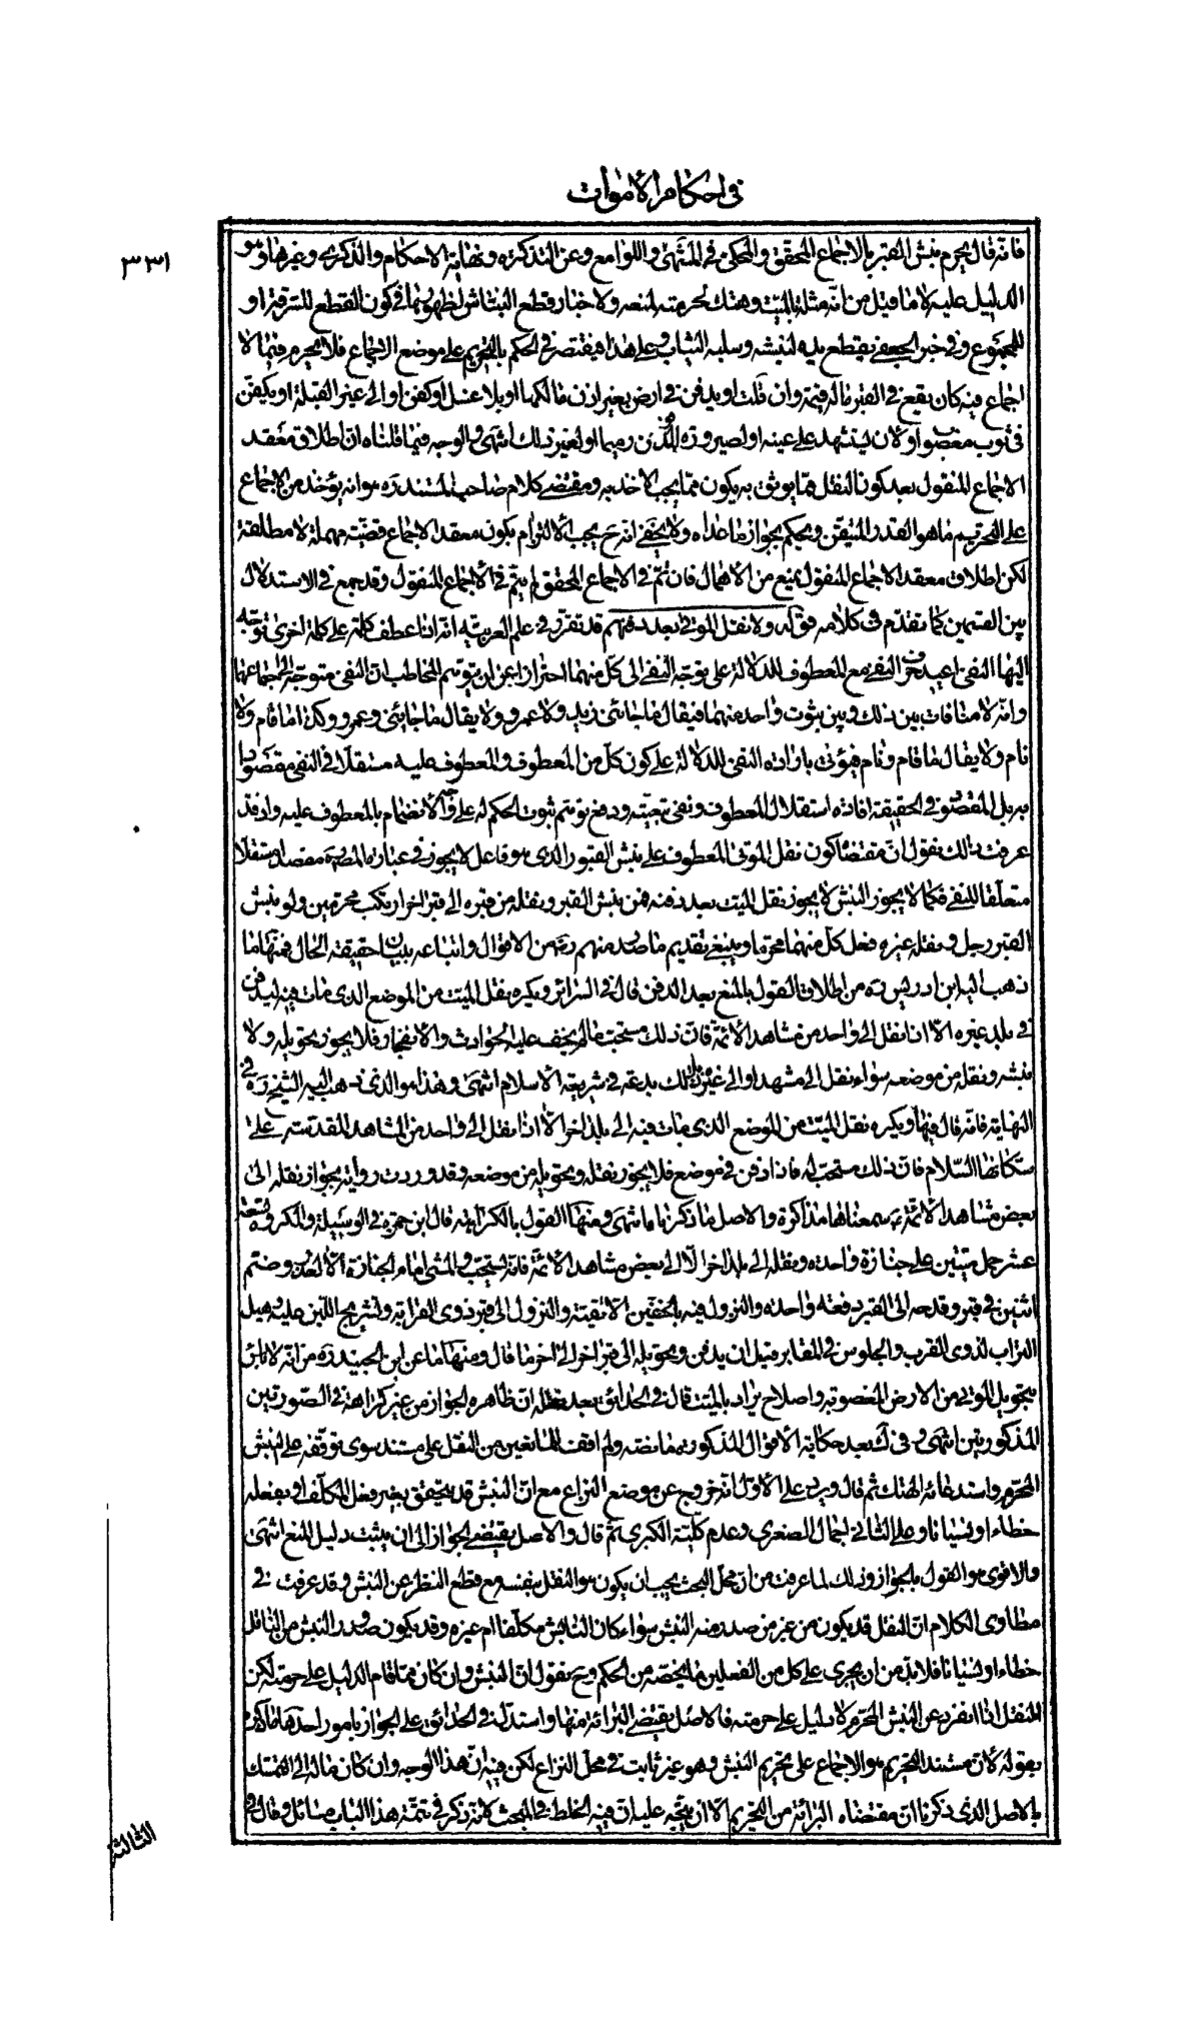 في احكام الأموات
٣٣١
فانّه قال يحرم نبش القبر بالاجماع المحقق والمحكى في المنتهى واللوامع وعن التذكرة ونهاية الاحكام والذكرى وغيرها وهو
الدليل عليه لا ما قيل من انّه مثلة بالميّت وهتك لحرمته لمنعه ولا اخبار قطع النبّاش لظهورها في كون القطع للسّرقة او
للمجموع وفي خبر الجعفي يقطع يده لنبشه وسلبه الثياب وعلى هذا فيقتصر في الحكم بالتحريم على موضع الاجماع فلا يحرم فيما لا
اجماع فيه كان يقع في القبر ماله قيمة وان قلّت او يدفن في ارض بغير اذن مالكها او بلا غسل او كفن او الى غير القبلة او يكفّن
في ثوب مغصوب او لان يشهد على عينه او لصيرورة المدفون رميما او لغير ذلك انتهى والوجه فيما قلناه ان اطلاق معقد
الاجماع المنقول بعد كون النقل ممّا يوثق به يكون ممّا يجب الاخذ به ومقتضى كلام صاحب المستند ره هو انه يؤخذ من الاجماع
على التحريم ما هو القدر المتيقّن ويحكم بجواز ما عداه ولا يخفى انه ح يجب الالتزام بكون معقد الاجماع قضيّة مهملة لا مطلقة
لكن اطلاق معقد الاجماع المنقول يمنع من الاهمال فان تمّ في الاجماع المحقق لم يتمّ في الاجماع المنقول وقد جمع في الاستدلال
بين القسمين كما تقدّم في كلامه قوله ولا نقل الموتى بعد دفنهم قد تقرّر في علم العربية انّه اذا عطف كلمة على كلمة اخرى توجّه
اليها النفى اعيد حرف النفى مع المعطوف للدلالة على توجّه النفى الى كلّ منهما احترازا عن ان يتوهّم المخاطب ان النفى متوجّه الى اجتماعهما
وانّه لا منافات بين ذلك وبين ثبوت واحد منهما فيقال ما جائنى زيد ولا عمرو ولا يقال ما جائنى وعمرو وكذا ما قام ولا
نام ولا يقال ما قام ونام فيؤتى باداة النفى للدلالة على كون كلّ من المعطوف والمعطوف عليه مستقلّا في النفى مقصودا
به بل المقصود في الحقيقة افادة استقلال المعطوف ونفى تبعيّته ودفع توهّم ثبوت الحكم له على وجه الانضمام بالمعطوف عليه واذ قد
عرفت ذلك نقول انّ مقتضى كون نقل الموتى المعطوف على نبش القبور الذى هو فاعل لا يجوز في عبارة المصنف ره مقصدا مستقلّا
متعلّقا للنفى فكما لا يجوز النبش لا يجوز نقل الميّت بعد دفنه فمن نبش القبر ونقله من قبره الى قبر اخر ارتكب محرّمين ولو نبش
القبر رجل ونقله غيره فعل كلّ منهما محرّما وينبغى تقديم ما صدر منهم ره من الاقوال واتباعه ببيان حقيقة الحال فمنها ما
ذهب اليه ابن ادريس ره من اطلاق القول بالمنع بعد الدفن قال في السرائر ويكره نقل الميّت من الموضع الذى مات فيه ليدفن
في بلد غيره الّا ان نقل الى واحد من مشاهد الأئمة فان ذلك مستحبّ ما لم يخف عليه الحوادث والانفجار فلا يجوز تحويله ولا
نبشه ونقله من موضعه سواء نقل الى مشهد او الى غيره بل ذلك بدعة في شريعة الاسلام انتهى وهذا هو الذى ذهب اليه الشيخ ره في
النهاية فانّه قال فيها ويكره نقل الميّت من الموضع الذى مات فيه الى بلد اخر الّا اذا نقل الى واحد من المشاهد المقدسة على
سكانها السّلام فان ذلك مستحبّ له فاذا دفن في موضع فلا يجوز نقله وتحويله من موضعه وقد وردت رواية بجواز نقله الى
بعض مشاهد الأئمّة سمعناها مذاكرة والاصل ما ذكرناه انتهى ومنها القول بالكراهة قال ابن حمزة في الوسيلة والمكروه تسعة
عشر حمل ميّتين على جنازة واحدة ونقله الى بلد اخر الّا الى بعض مشاهد الأئمّة فانّه يستحبّ والمشى امام الجنازة الّا لعذر وضمّ
اثنين في قبر وقدحه الى القبر دفعة واحدة والنزول فيه بالخفّين الّا تقيّة والنزول الى قبر ذوى القرابة وتشريج اللبن عليه وهيل
التراب لذوى القرب والجلوس في المقابر قبل ان يدفن وتحويله الى قبر اخر الى اخر ما قال ومنها ما عن ابن الجنيد ره من انّه لا باس
بتحويل الموتى من الارض المغصوبة ولصلاح يراد بالميّت قال في الحدائق بعد نقله ان ظاهره الجواز من غير كراهة في الصّورتين
المذكورتين انتهى وفي ك بعد حكاية الاقوال المذكورة ما نصّه ولم اقف للمانعين من النقل على مستند سوى توقفه على النبش
المحرّم واستدعائه الهتك ثم قال ويرد على الاوّل انّه خروج عن موضع النزاع مع انّ النبش قد يتحقق بغير فعل المكلّف او بفعله
خطاء او نسيانا وعلى الثانى اجمال الصغرى وعدم كليّة الكبرى ثم قال والاصل يقتضى الجواز الى ان يثبت دليل المنع انتهى
والاقوى هو القول بالجواز وذلك لما عرفت من ان محلّ البحث يجب ان يكون هو النقل بنفسه مع قطع النظر عن النبش وقد عرفت في
مطاوى الكلام انّ النقل قد يكون من غير من صدر منه النبش سواء كان النابش مكلّفا ام غيره وقد يكون صدور النبش من الناقل
خطاء او نسيانا فلا بدّ من ان يجرى على كل من الفعلين ما يخصّه من الحكم وح نقول انّ النبش وان كان ممّا قام الدليل على حرمته لكن
النقل اذا انفرد عن النبش المحرّم لا دليل على حرمته فالاصل يقتضى البرائة منها واستدلّ في الحدائق على الجواز بامور احدها ما ذكره
بقوله لأنّ مستند التحريم هو الاجماع على تحريم النبش وهو غير ثابت في محلّ النزاع لكن فيه انّ هذا الوجه وان كان مآله الى التمسّك
بالاصل الذى ذكرنا انّ مقتضاه البرائة من التحريم الّا ان يتّجه عليه ان فيه الخلط في المبحث لانّه ذكر في تتمّة هذا الباب مسائل وقال في
الثالثة